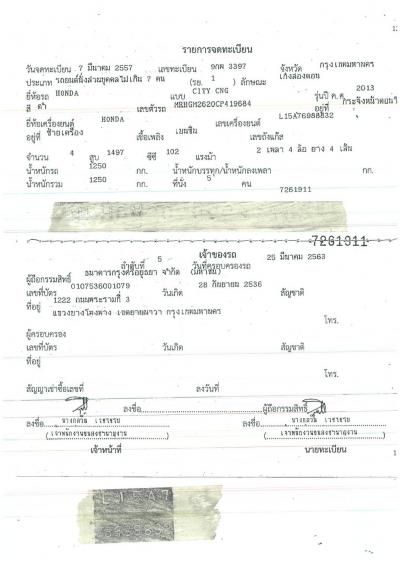 รายการจดทะเบียน
วันจดทะเบียน 7 มีนาคม 2557 เลขทะเบียน 9กฬ 3397 จังหวัด กรุงเทพมหานคร
ประเภท รถยนต์นั่งส่วนบุคคลไม่เกิน 7 คน (รย. 1 ) ลักษณะ เก๋งสองตอน
ยี่ห้อรถ HONDA แบบ CITY CNG รุ่นปี ค.ศ. 2013
สี เลขตัวรถ MRHGM2620CP419684 อยู่ที่
ยี่ห้อเครื่องยนต์ HONDA เลขเครื่องยนต์ L15A76988832
อยู่ที่ ซ้ายเครื่อง เชื้อเพลิง เบนซิน เลขถังแก๊ส
จำนวน 4 สูบ 1497 ซีซี 102 แรงม้า 2 เพลา 4 ล้อ ยาง 4 เส้น
น้ำหนักรถ 1250 กก. น้ำหนักบรรทุก/น้ำหนักลงเพลา กก.
น้ำหนักรวม 1250 กก. ที่นั่ง 5 คน
7261911
7261911
เจ้าของรถ
ลำดับที่ 5 วันที่ครอบครองรถ 25 มีนาคม 2563
ผู้ถือกรรมสิทธิ์ ธนาคารกรุงศรีอยุธยา จำกัด (มหาชน)
เลขที่บัตร 0107536001079 วันเกิด 28 กันยายน 2536 สัญชาติ
ที่อยู่ 1222 ถนนพระรามที่ 3
แขวงบางโพงพาง เขตยานนาวา กรุงเทพมหานคร
โทร.
ผู้ครอบครอง
เลขที่บัตร วันเกิด สัญชาติ
ที่อยู่
โทร.
สัญญาเช่าซื้อเลขที่ ลงวันที่
ลงชื่อ ผู้ถือกรรมสิทธิ์
ลงชื่อ ลงชื่อ
(เจ้าพนักงานขนส่งชำนาญงาน) (เจ้าพนักงานขนส่งชำนาญงาน)
เจ้าหน้าที่ นายทะเบียน